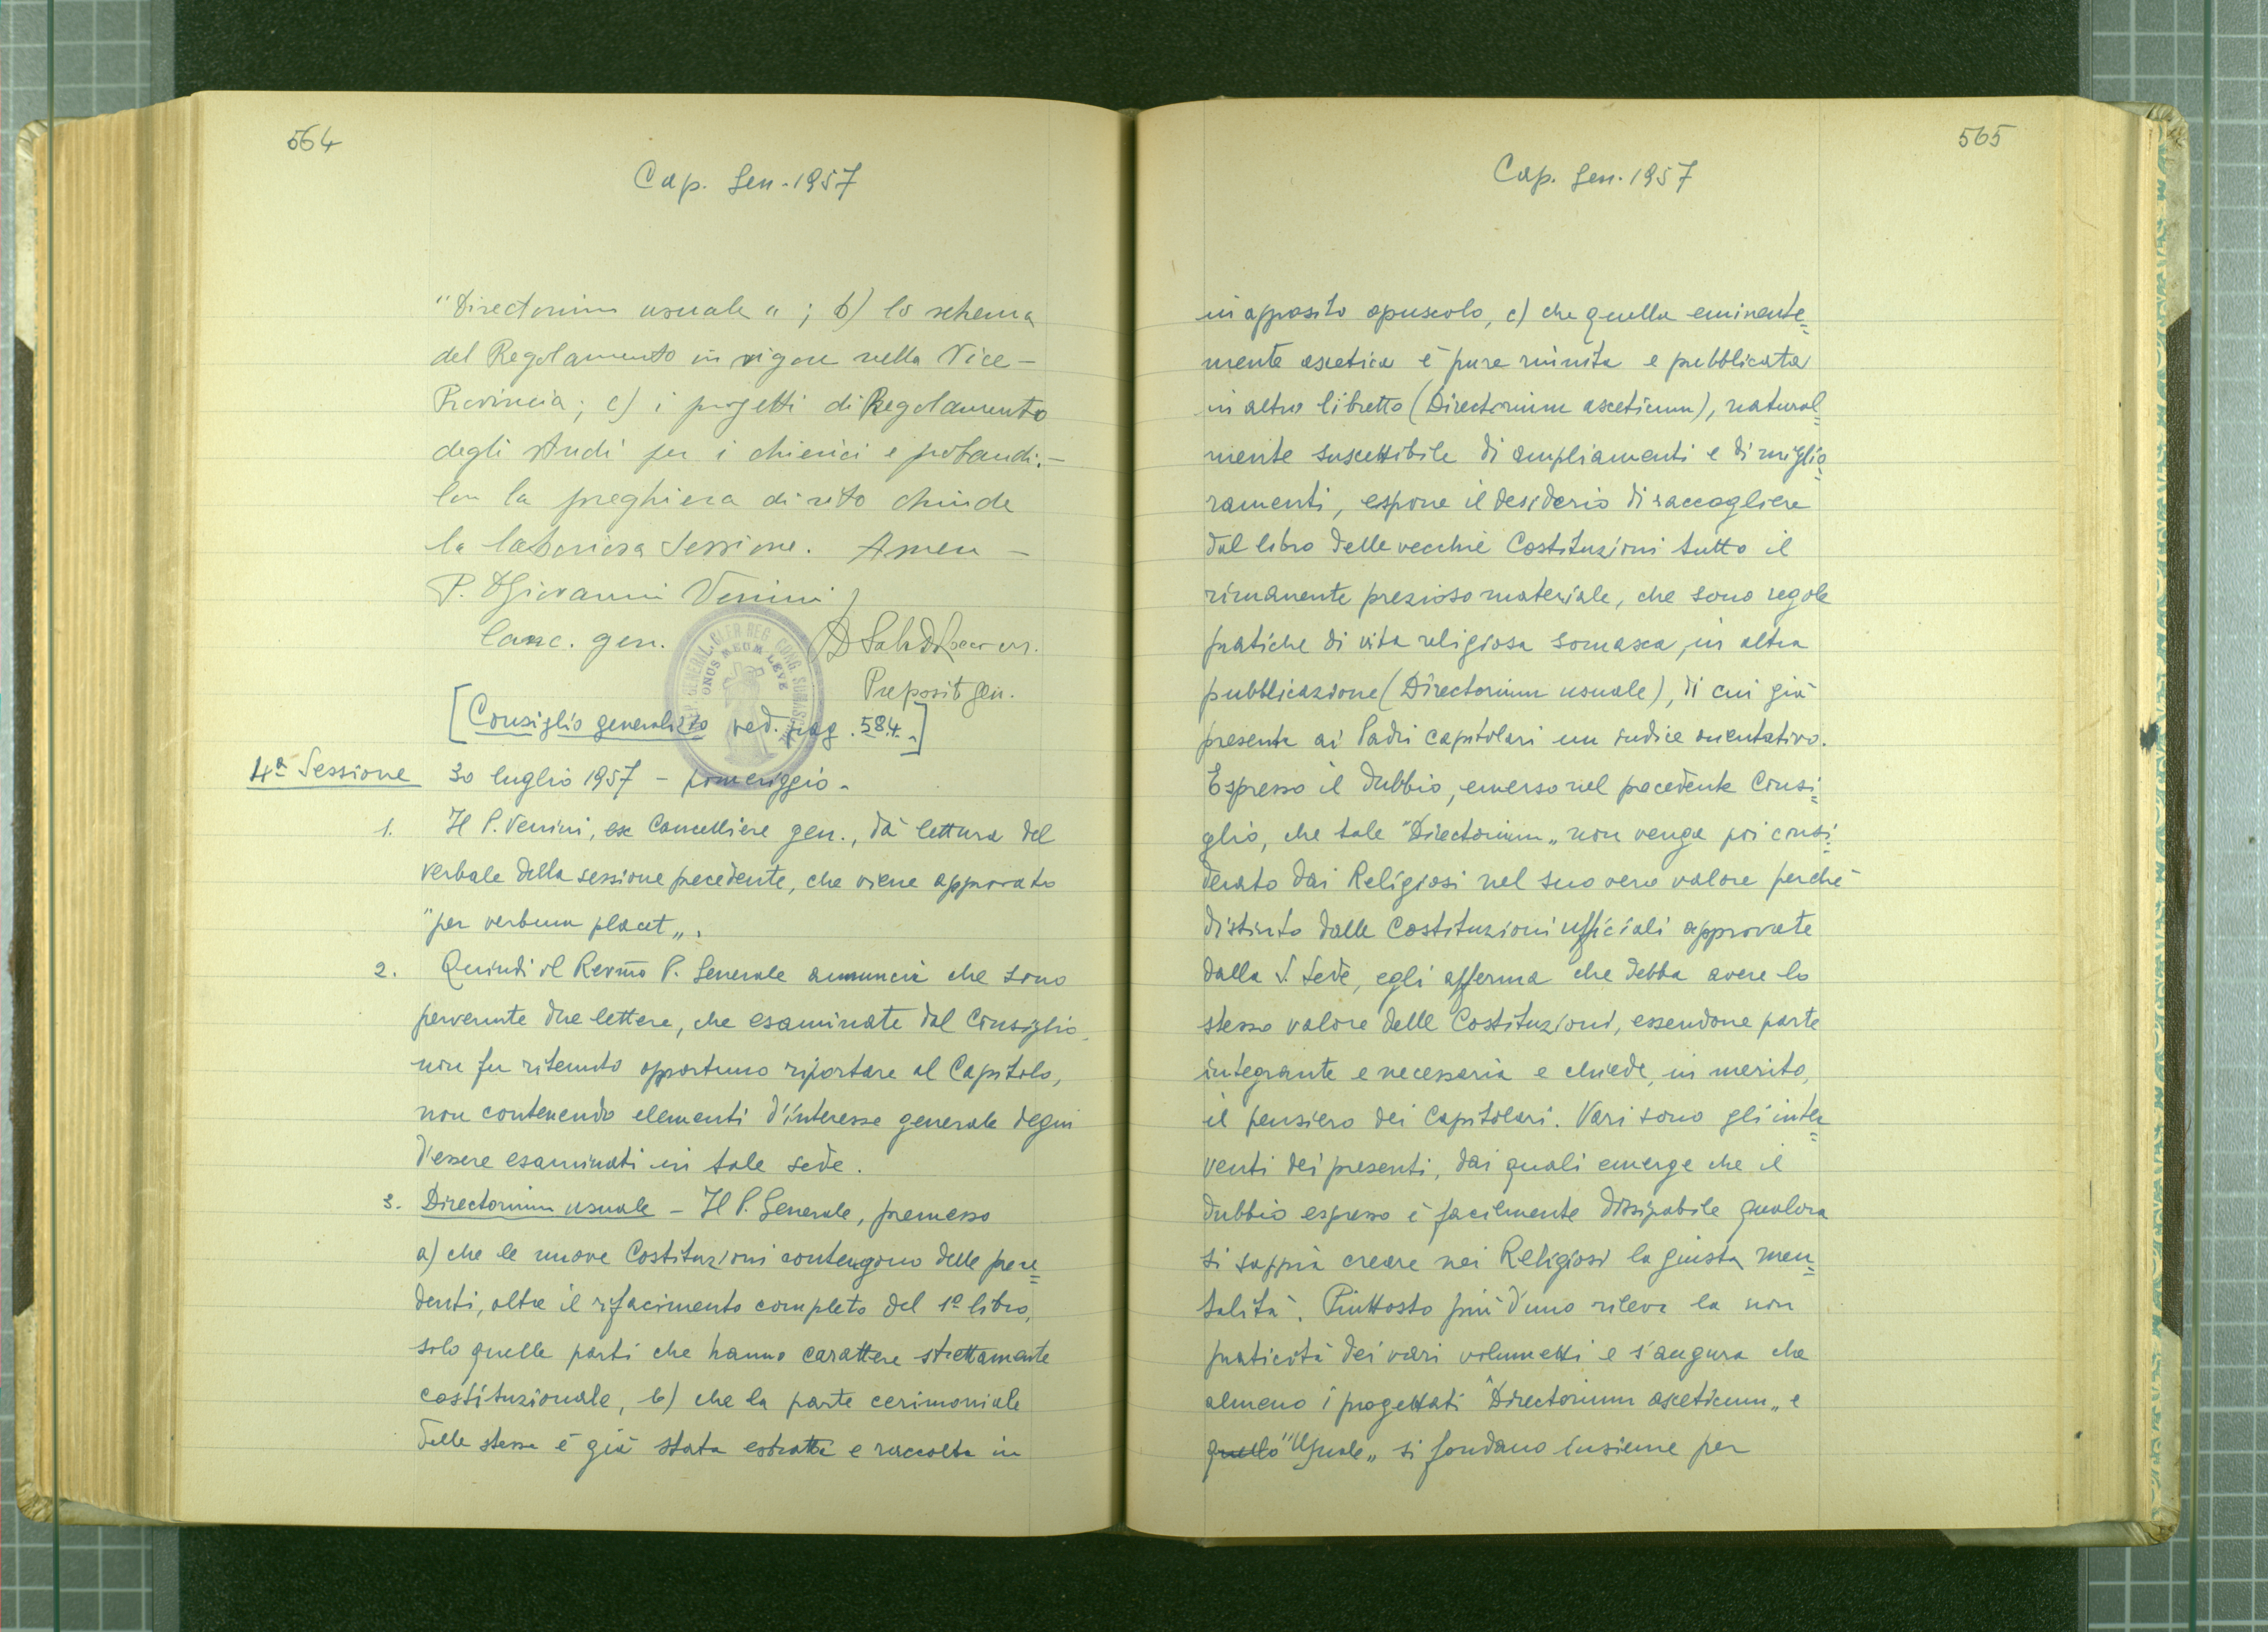 564
Cap. Gen. 1957
"Directorium usuale" ; b) lo schema
del Regolamento in vigore nella Vice-
Provincia ; c) i progetti di Regolamento
degli studi per i chierici e probandi. -
Con la preghiera di rito chiude
la laboriosa Sessione. Amen -
P. Giovanni Venini
Canc. gen.
Preposit gen.
[Consiglio generalizio ved. pag. 584.]
4ª Sessione 30 luglio 1957 - pomeriggio.
1. Il P. Venini, ex Cancelliere gen., dà lettura del
verbale della sessione precedente, che viene approvato
"per verbum placet„.
2. Quindi il Rev̄mo P. Generale annuncia che sono
pervenute due lettere, che esaminate dal Consiglio,
non fu ritenuto opportuno riportare al Capitolo,
non contenendo elementi d'interesse generale degni
d'essere esaminati in tale sede.
3. Directorium usuale - Il P. Generale, premesso
a) che le nuove Costituzioni contengono delle prece=
denti, oltre il rifacimento completo del 1º libro,
solo quelle parti che hanno carattere strettamente
costituzionale, b) che la parte cerimoniale
delle stesse è già stata estratta e raccolta in
565
Cap. Gen. 1957
in apposito opuscolo, c) che quella eminente=
mente ascetica è pure riunita e pubblicata
in altro libretto (Directorium asceticum), natural=
mente suscettibile di ampliamenti e di miglio=
ramenti, espone il desiderio di raccogliere
dal libro delle vecchie Costituzioni tutto il
rimanente prezioso materiale, che sono regole
pratiche di vita religiosa somasca, in altra
pubblicazione (Directorium usuale), di cui già
presenta ai Padri capitolari un indice orientativo.
Espresso il dubbio, emerso nel precedente Consi=
glio, che tale "Directorium„ non venga poi consi=
derato dai Religiosi nel suo vero valore perchè
distinto dalle Costituzioni ufficiali approvate
dalla S. Sede, egli afferma che debba avere lo
stesso valore delle Costituzioni, essendone parte
integrante e necessaria e chiede, in merito,
il pensiero dei Capitolari. Vari sono gli inter=
venti dei presenti, dai quali emerge che il
dubbio espresso è facilmente dissipabile qualora
si sappia creare nei Religiosi la giusta men=
talità. Piuttosto più d'uno rileva la non
praticità dei vari volumetti e s'augura che
almeno i progettati "Directorium asceticum„ e
quello "Usuale„ si fondano insieme per